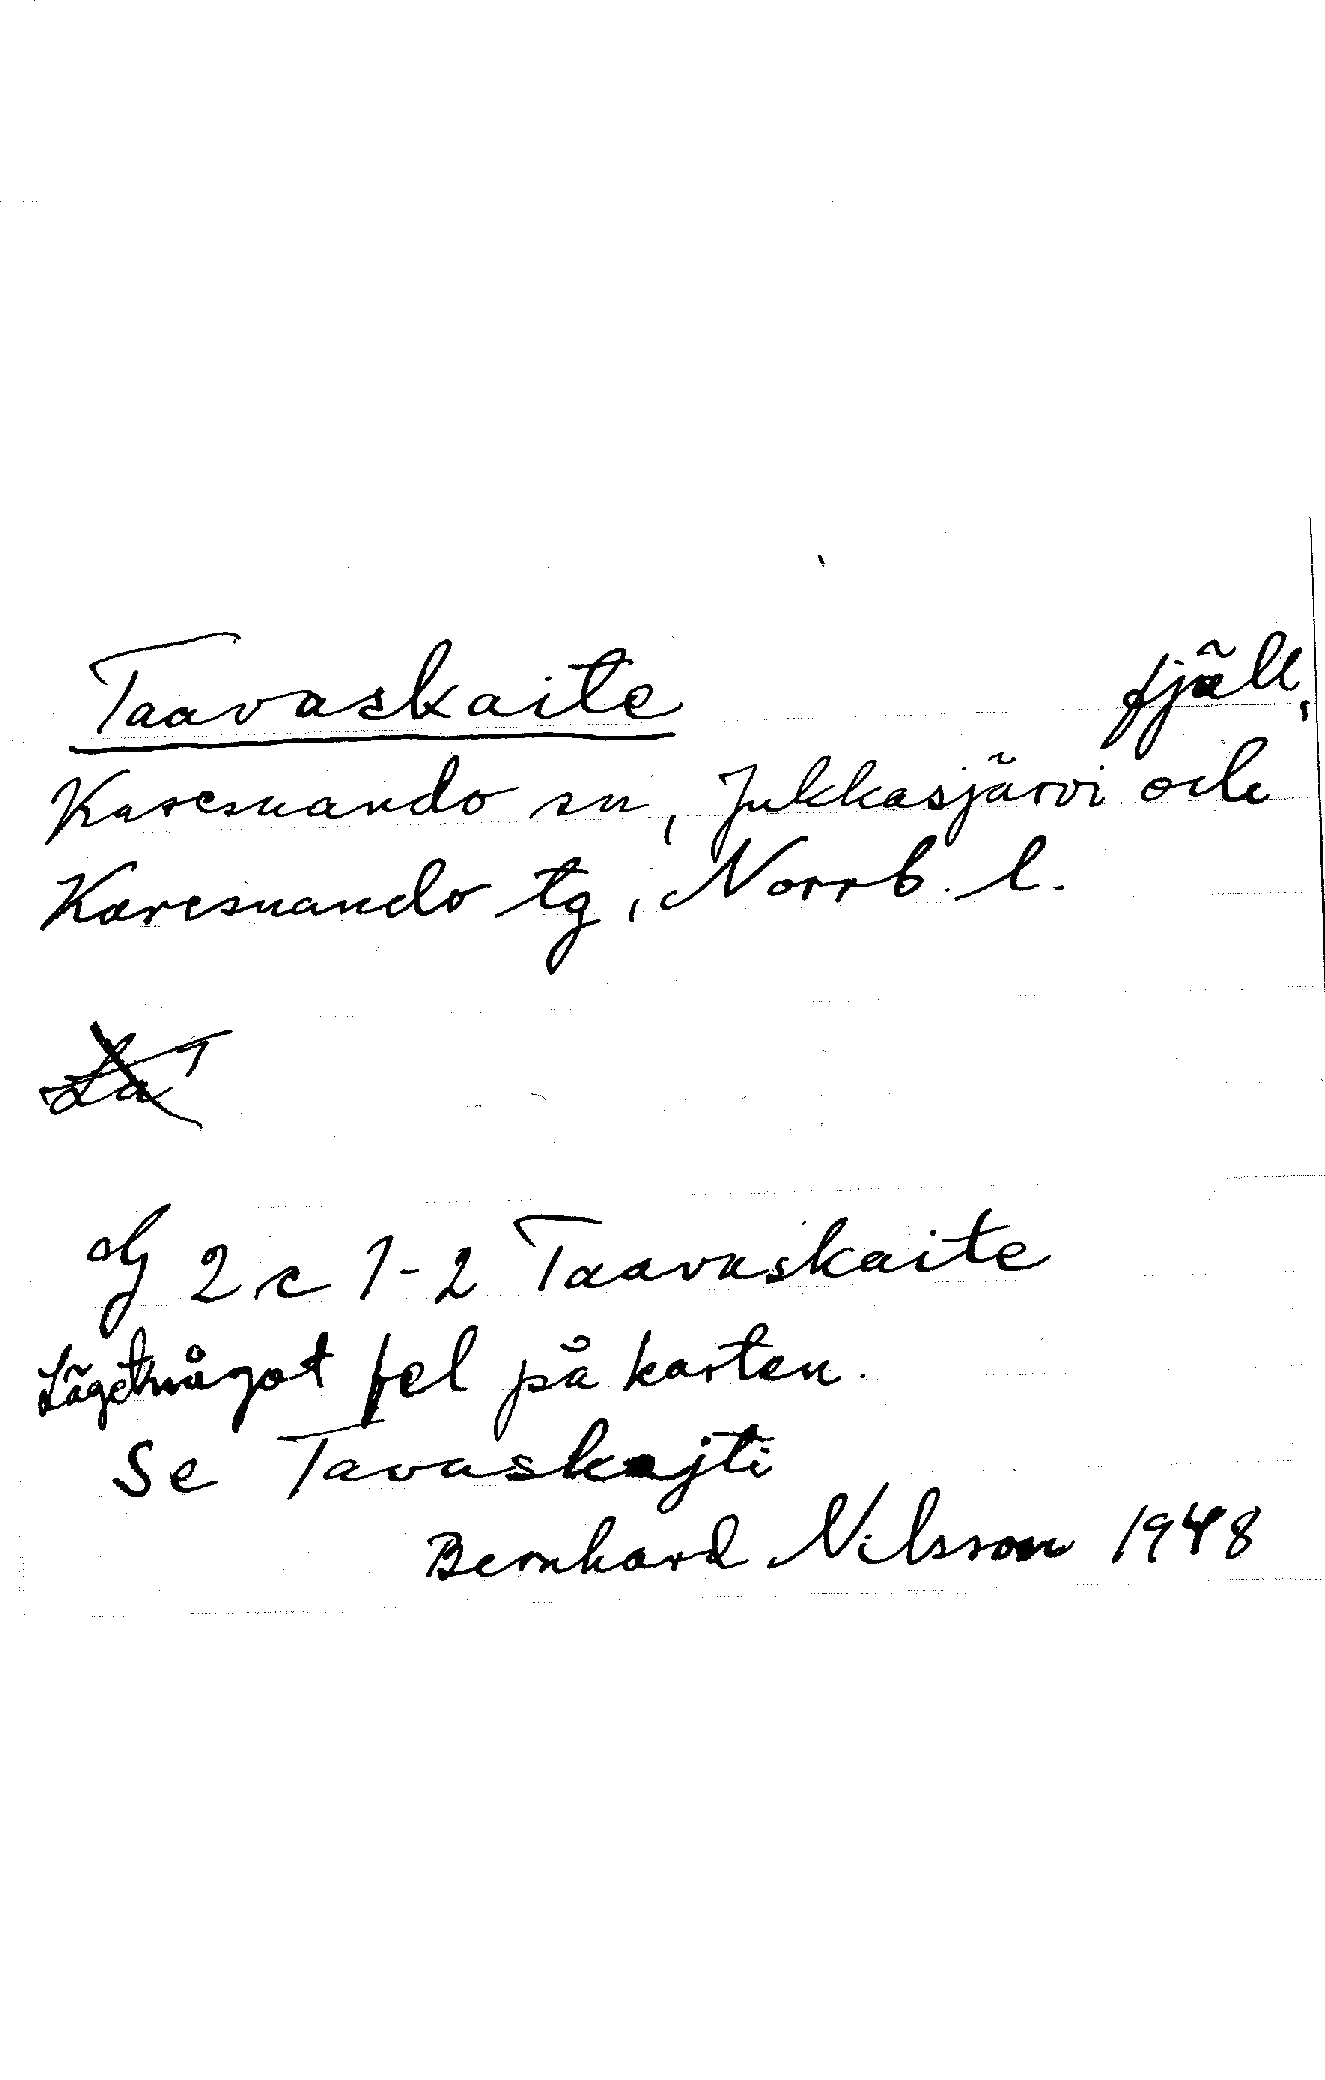 Taavaskaite fjäll,
Karesuando sn, Jukkasjärvi och
Karesuando tg, Norrb. l.
2 c 1-2 Taavaskaite
Läget något fel på kartan.
Se Tavaskajti
Bernhard Nilsson 1948